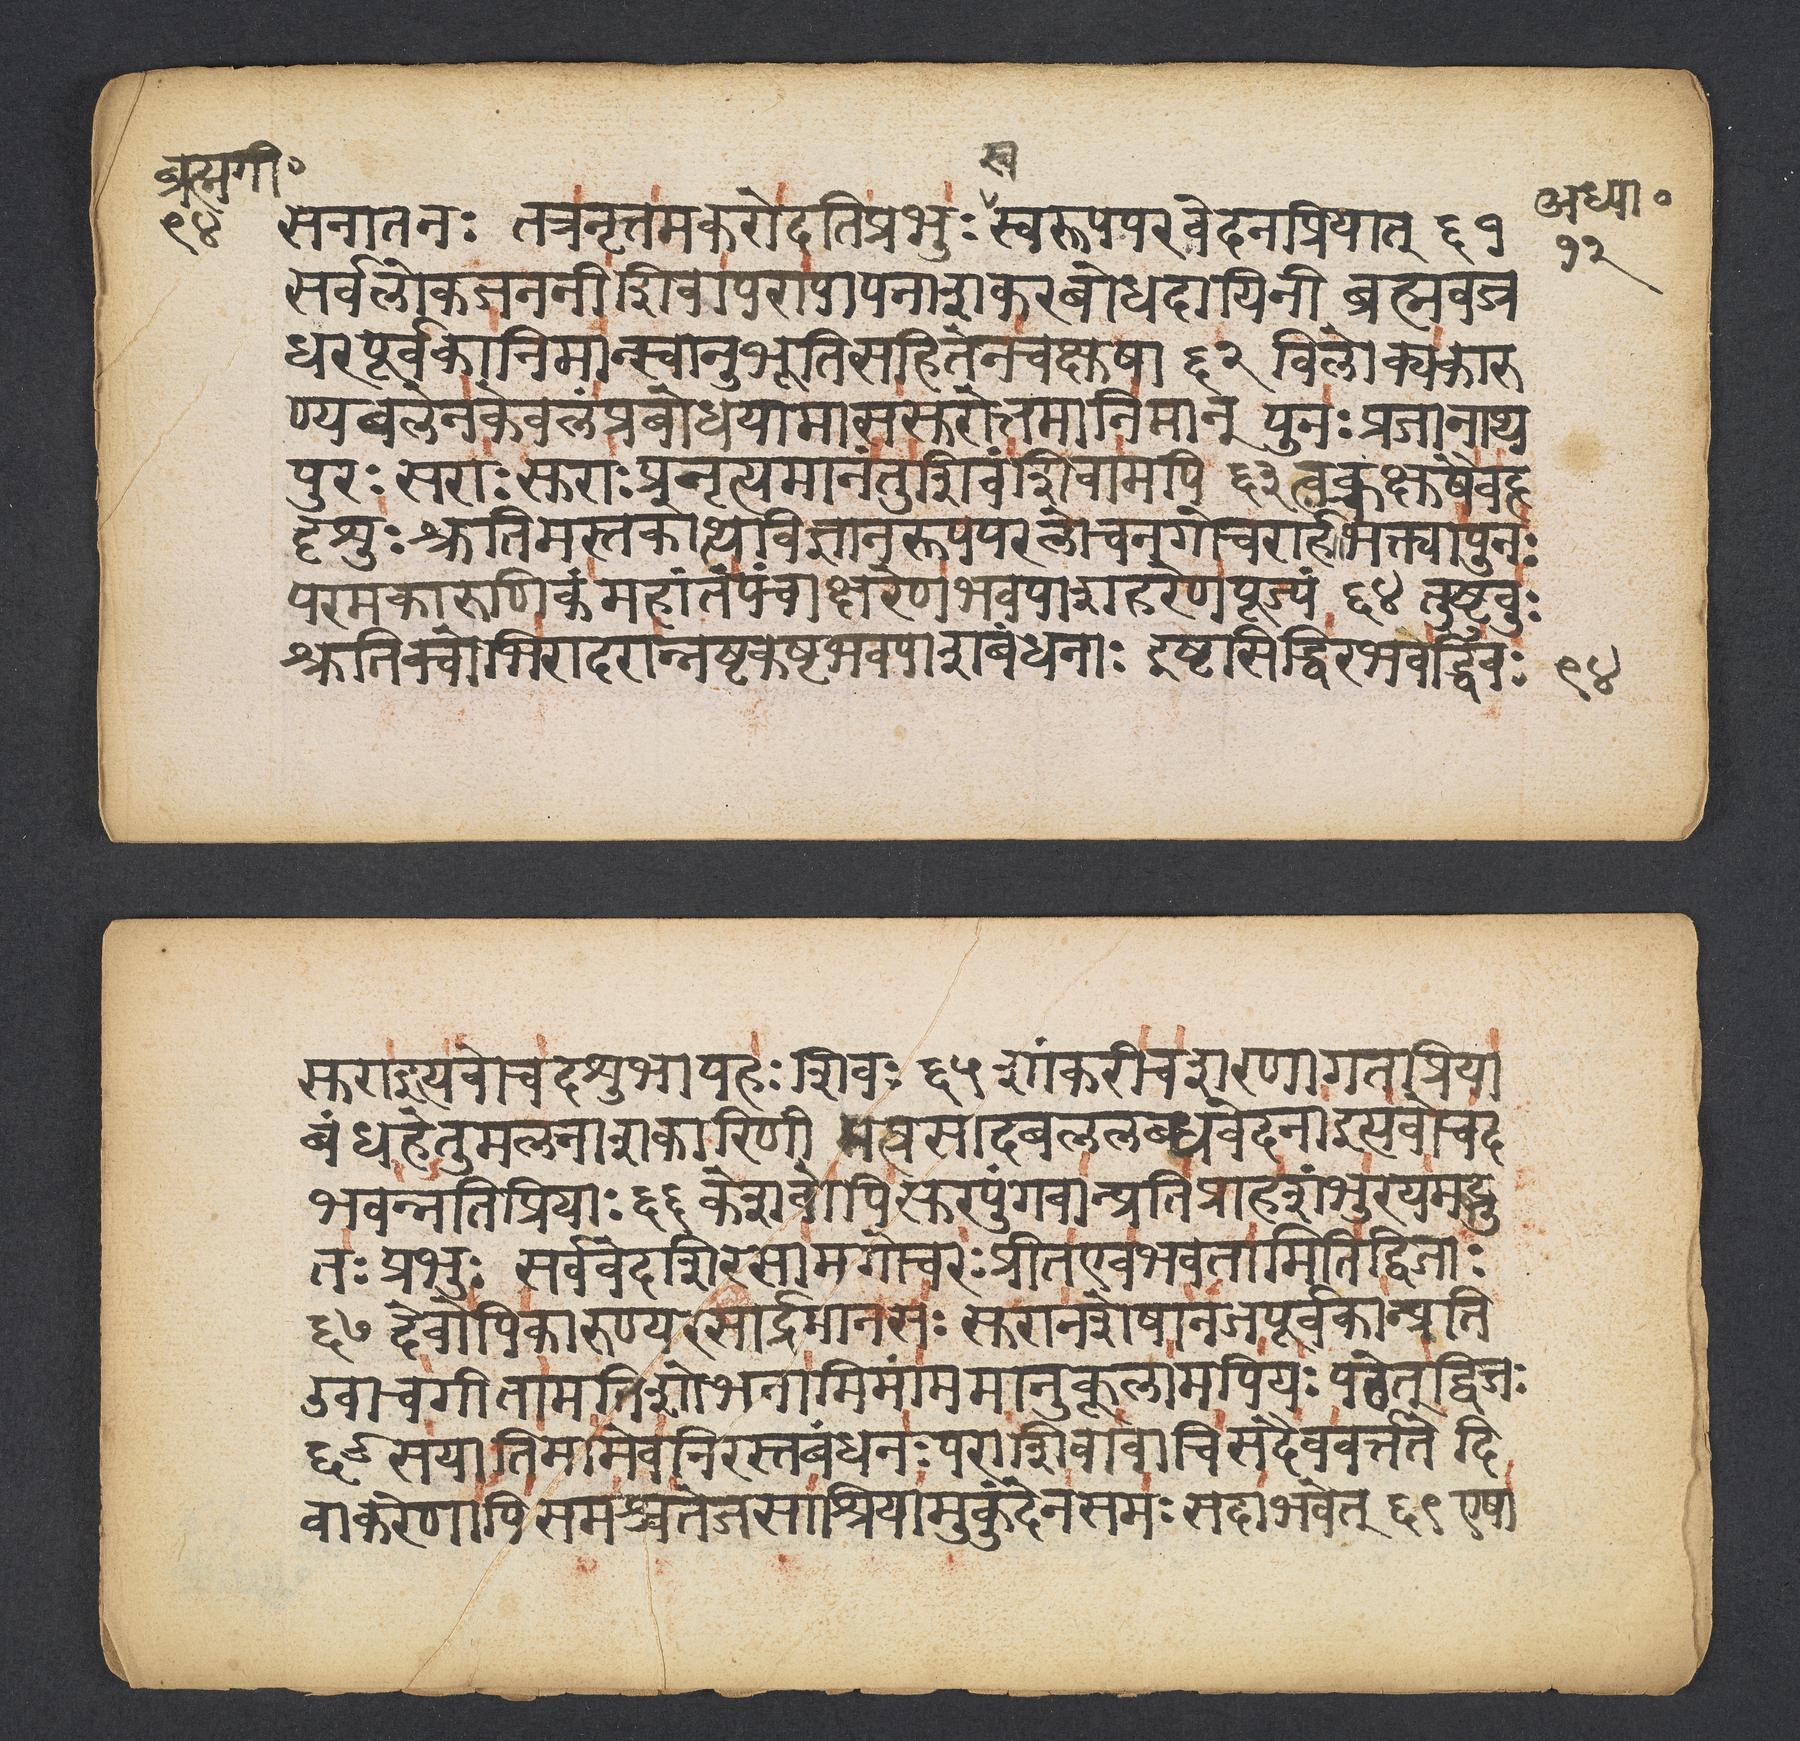 ब्रह्मगी॰
९४
स्व
अध्या॰
१२
सनातनः तत्रनृत्तमकरोदतिप्रभुः स्वरूपपरवेदनप्रियात् ६१
सर्वलोकजननीशिवापरापापनाशकरबोधदायिनी ब्रह्मवज्र
धरपूर्वकानिमान्स्वानुभूतिसहितेनचक्षुषा ६२ विलोक्यकारु
ण्यबलेनकेवलंप्रबोधयामाससुरोत्तमानिमान् पुनःप्रजानाथ
पुरःसराःसुराःप्रनृत्यमानंतुशिवंशिवामपि ६३
दृशुःश्रुतिमस्तकोत्थविज्ञानरूपपरलोचनगोचरार्हंभक्त्यापुनः
परमकारुणिकंमहांतंपंचाक्षरेणभवपाशहरेणपूज्यं ६४ तुष्टुवुः
श्रुतिवचोभिरादरान्नष्टकष्टभवपाशबंधनाः इष्टसिद्धिरभवद्धिवः ९४
सुराइत्यवोचदशुभापहःशिवः ६५ शांकरीचशरणागतप्रिया
बंधहेतुमलनाशकारिणी मत्प्रसादबललब्धवेदनाइत्यवोचद
भवन्नतिप्रियाः ६६ केशवोपिसुरपुंगवान्प्रतिप्राहशंभुरयमद्भु
तःप्रभुः सर्ववेदशिरसामगोचरःप्रीतएवभवतामितिद्विजाः
६७ देवोपिकारुण्यरसार्द्रमानसः सुरानशेषानजपूर्वकान्प्रति
उवाचगीतामतिशोभनामिमांममानुकूलामपियःपठेत्द्विजः
६८ सयातिमामेवनिरस्तबंधनःपराशिवावाचिसदैववर्त्तते दि
वाकरेणापिसमश्चतेजसाश्रियामुकुंदेनसमःसदाभवेत् ६९ एषा